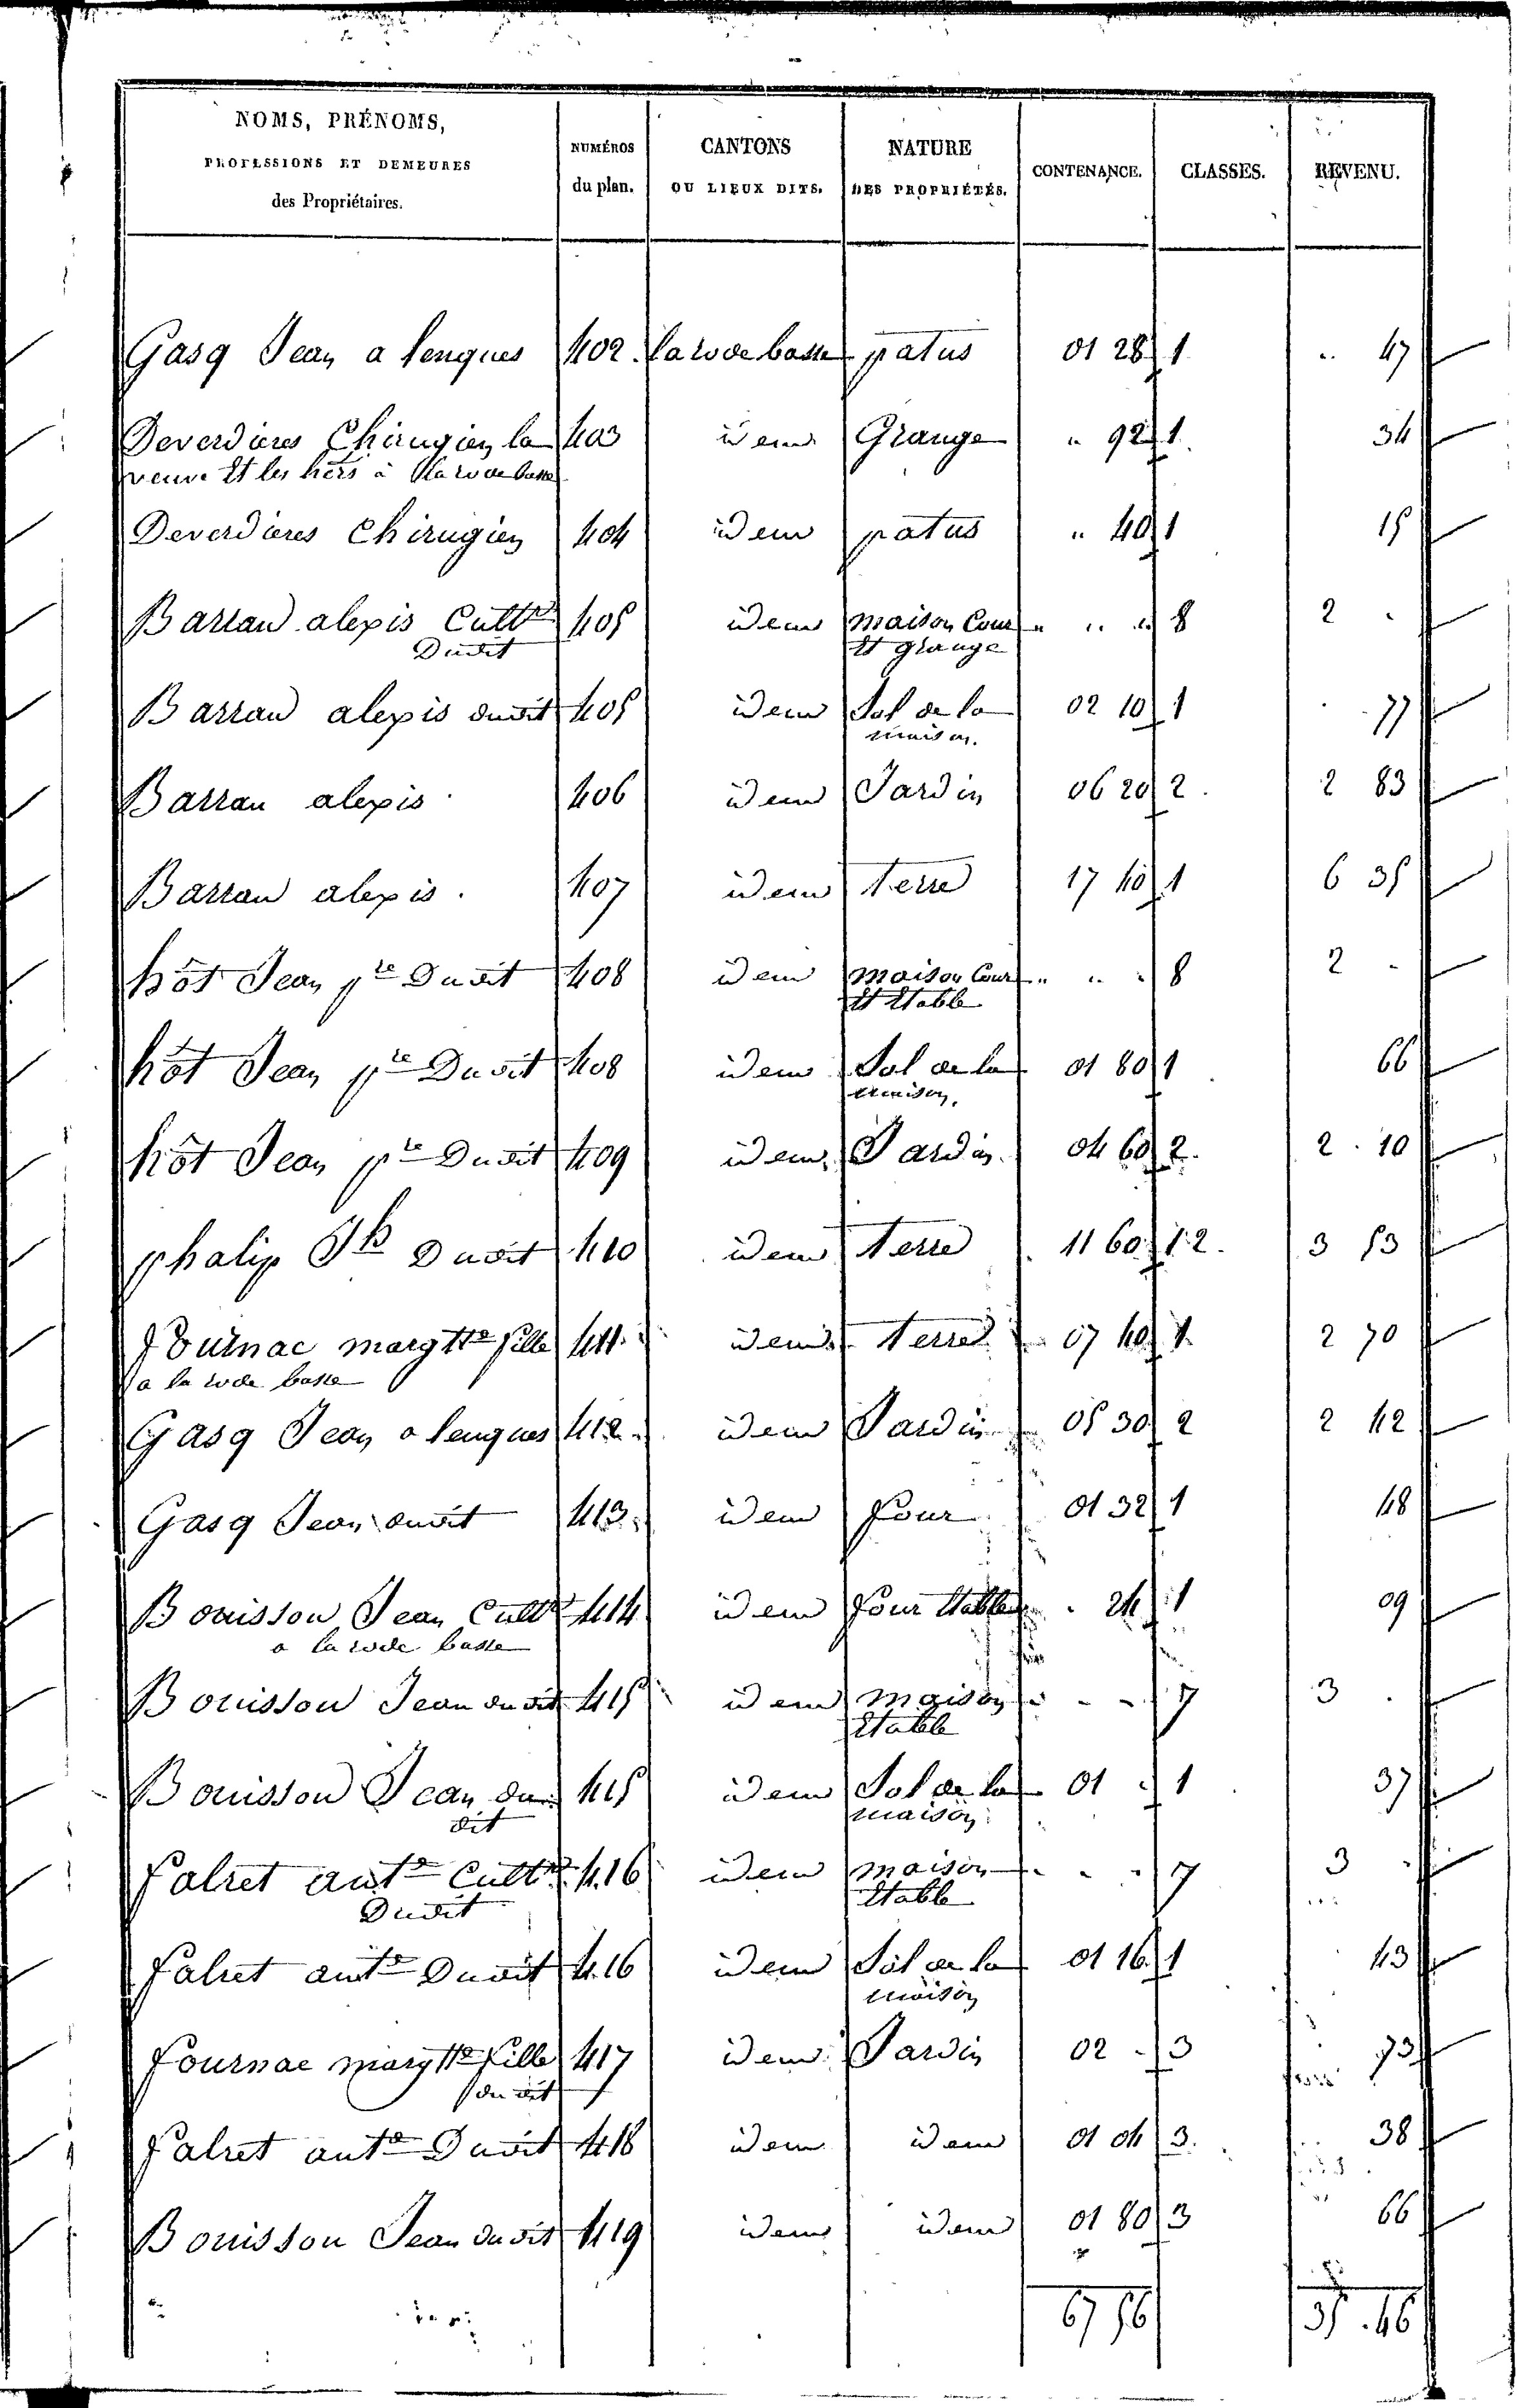 NOMS, PRÉNOMS,
PROFESSIONS ET DEMEURES
des Propriétaires.
NUMÉROS
du plan.
CANTONS
OU LIEUX DITS.
NATURE
DES PROPRIÉTÉS.
CONTENANCE.
CLASSES.
REVENU.
Gasq Jean a lengues 402. la rode basse patus 01 28 1 .. 47
Deverdieres Chirugien la 403 idem Grange .. 92 1 34
veuve Et les hers à la rode basse
Deverdieres Chirugien 404 idem patus .. 40 1 15
Barrau alexis Cultr 405 idem maison Cour .. .. .. 8 2 .
Dudit Et grange
Barrau alexis dudit 405 idem Sol de la 02 10 1 77
maison.
Barrau alexis 406 idem Jardin 06 20 2 2 83
Barrau alexis. 407 idem terre 17 40 1 6 35
hôt Jean pre Dudit 408 idem maison Cour .. .. .. 8 2 -
Et Etable
hôt Jean pre Dudit 408 idem Sol de la 01 80 1 66
maison.
hôt Jean pre Dudit 409 idem Jardin 04 60 2. 2 10
phalip Jh Dudit 410 idem terre 11 60 1.2. 3 53
Fournac margtte fille 411 idem terre 07 40 1 2 70
a la rode basse
Gasq Jean a lengues 412 idem Jardin 05 30 2 2 42
Gasq Jean dudit 413 idem four 01 32 1 48
Bouisson Jean Cultr 414 idem four Etable .. 24 1 09
a la rode basse
Bouisson Jean dudit 415 idem maison - - - 7 3 .
Etable
Bouisson Jean du 415 idem Sol de la 01 .. 1 37
dit maison
falret ante Cultr 416 idem maison - - - 7 3
Dudit Etable
falret ante Dudit 416 idem Sol de la 01 16 1 43
maison
fournac margtte fille 417 idem Jardin 02 - 3 73
du dit
falret ante Dudit 418 idem idem 01 04 3. 38
Bouisson Jean dudit 419 idem idem 01 80 3 66
67 56 35.46